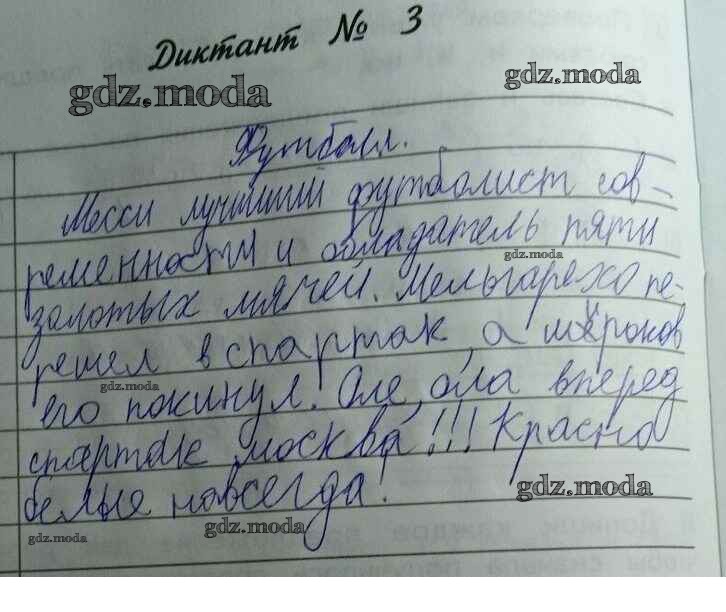 Диктант № 3
gdz.moda
gdz.moda
Футболл.
Месси лучший футболист сов-
ременности и обладатель пяти
gdz.moda
золотых мячей. Мельгарехо пе-
решел в спартак, а широков
gdz.moda
его покинул. Оле, ола вперед
спартак москва!!! Красно
белые навсегда!
gdz.moda
gdz.moda
gdz.moda